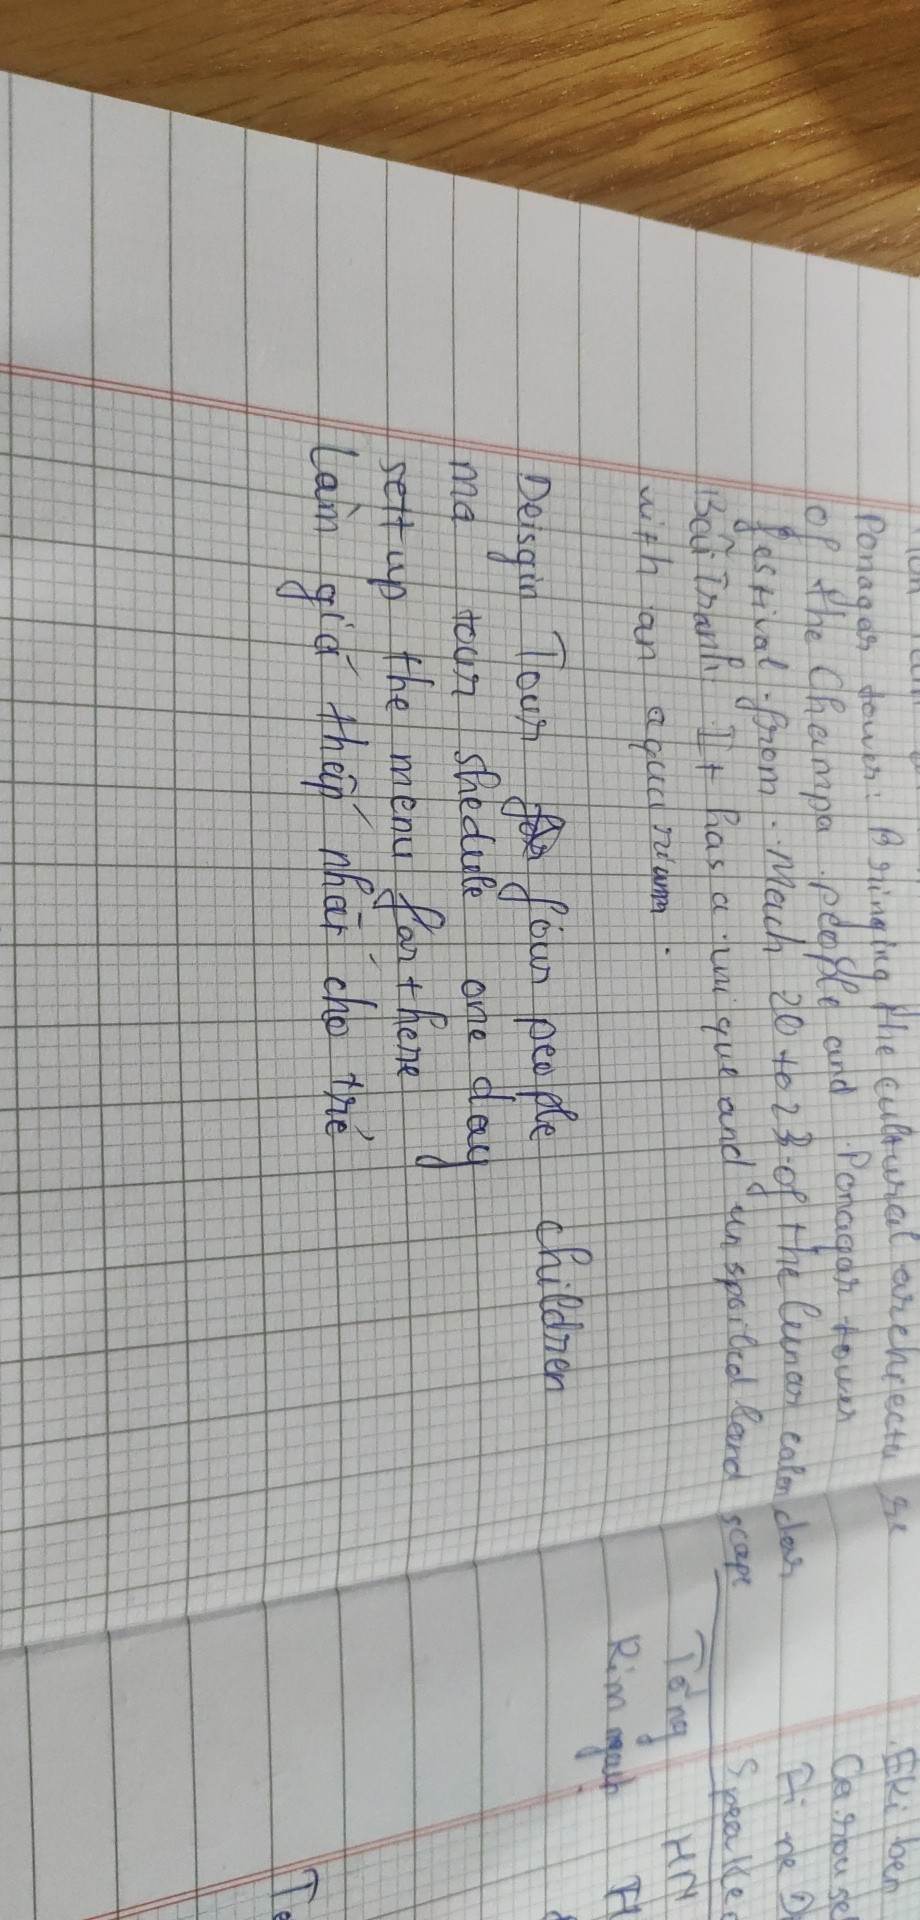 Ponagar tower: Bringing the cultural archiectu re
of the Champa people and Ponagar tower
festival from March 20 to 23 of the lunar calendar
Bãi Tranh: It has a unique and unspoiled land scape
with an aquarium.
Deisgin Tour four people children
ma tour shedule one day
sett up the menu for there
Làm giá thấp nhất cho trẻ
Ekiben
Carouse
Fi ne D
Speake
Tổng HN
Rim
Te